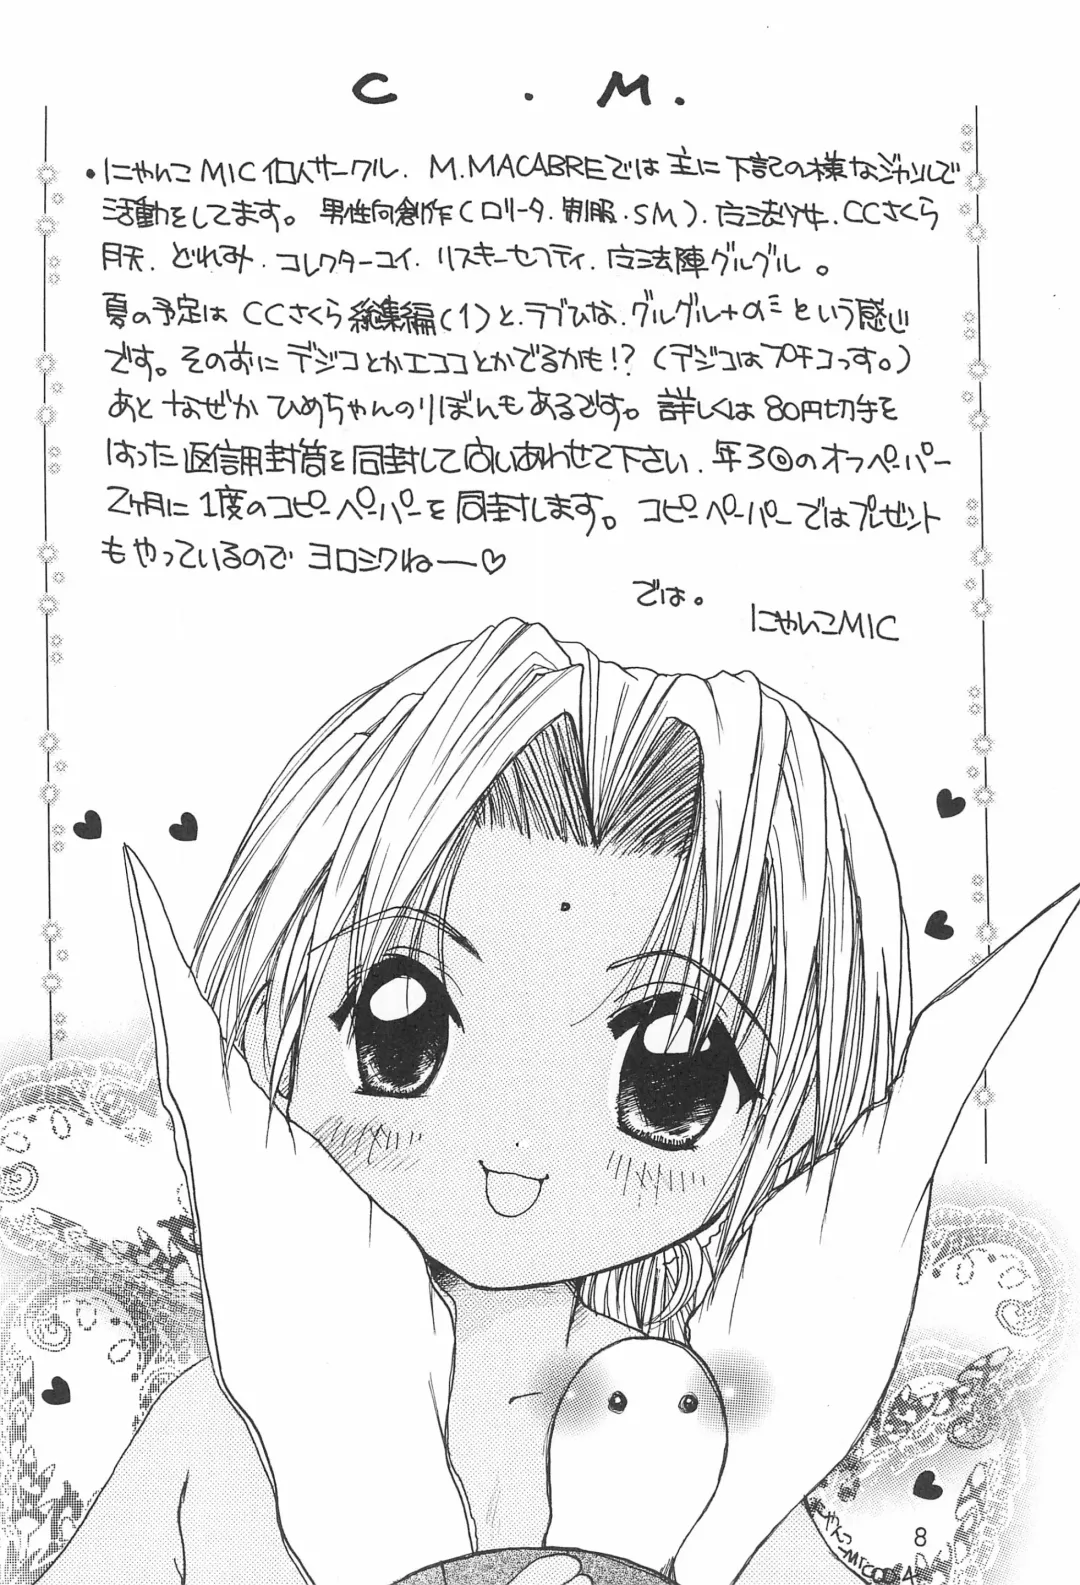 C . M.
・にゃんこMIC個人サークル. M.MACABREでは主に下記の様なジャンルで
活動をしてます。 男性向創作(ロリータ.制服.SM).魔法少女.CCさくら
月天.どれみ.コレクターユイ.リスキーセフティ.魔法陣グルグル。
夏の予定はCCさくら総集編(1)と.ラブひな.グルグル+αという感じ
です。その前にデジコとかエココとかでるかも!?(デジコはプチコっす。)
あと なぜか ひめちゃんのりぼんもあるです。詳しくは80円切手を
はった返信用封筒を同封して問いあわせて下さい.年3回のオフペーパー
2ヶ月に1度のコピーペーパーを同封します。コピーペーパーではプレゼント
もやっているのでヨロシクねー♡
では。
にゃんこMIC
にゃんこ
8